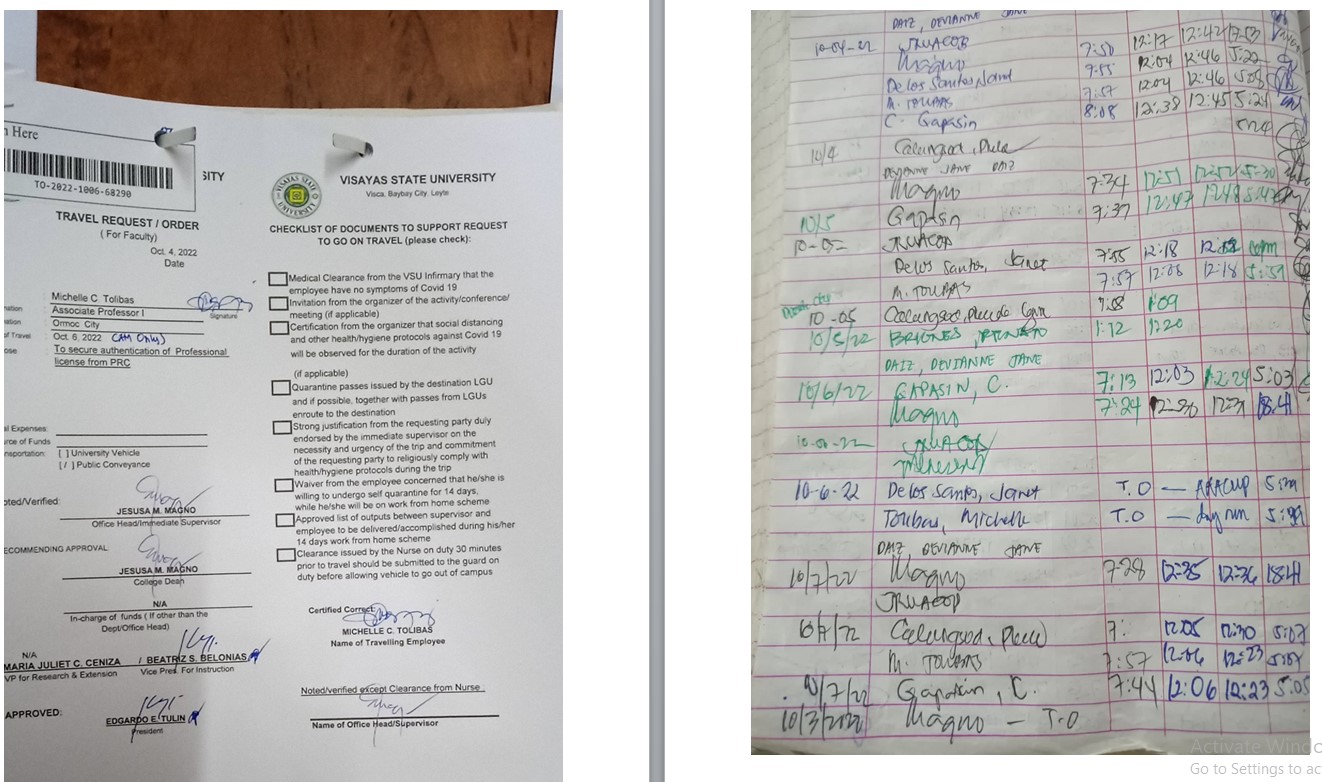 n Here
TO-2022-1006-68290
SITY
TRAVEL REQUEST / ORDER
( For Faculty)
Oct. 4, 2022
Date
Michelle C. Tolibas
Signature
Associate Professor I
Ormoc City
of Travel Oct. 6, 2022 (AM Only)
ose To secure authentication of Professional
license from PRC
al Expenses:
rce of Funds
nsportation: [ ] University Vehicle
[ / ] Public Conveyance
oted/Verified:
JESUSA M. MAGNO
Office Head/Immediate Supervisor
ECOMMENDING APPROVAL:
JESUSA M. MAGNO
College Dean
N/A
In-charge of funds ( If other than the
Dept/Office Head)
N/A
MARIA JULIET C. CENIZA / BEATRIZ S. BELONIAS
VP for Research & Extension Vice Pres. For Instruction
APPROVED:
EDGARDO E. TULIN
President
VISAYAS STATE UNIVERSITY
Visca, Baybay City, Leyte
CHECKLIST OF DOCUMENTS TO SUPPORT REQUEST
TO GO ON TRAVEL (please check):
Medical Clearance from the VSU Infirmary that the
employee have no symptoms of Covid 19
Invitation from the organizer of the activity/conference/
meeting (if applicable)
Certification from the organizer that social distancing
and other health/hygiene protocols against Covid 19
will be observed for the duration of the activity
(if applicable)
Quarantine passes issued by the destination LGU
and if possible, together with passes from LGUs
enroute to the destination
Strong justification from the requesting party duly
endorsed by the immediate supervisor on the
necessity and urgency of the trip and commitment
of the requesting party to religiously comply with
health/hygiene protocols during the trip
Waiver from the employee concerned that he/she is
willing to undergo self quarantine for 14 days,
while he/she will be on work from home scheme
Approved list of outputs between supervisor and
employee to be delivered/accomplished during his/her
14 days work from home scheme
Clearance issued by the Nurse on duty 30 minutes
prior to travel should be submitted to the guard on
duty before allowing vehicle to go out of campus
Certified Correct:
MICHELLE C. TOLIBAS
Name of Travelling Employee
Noted/verified except Clearance from Nurse
Name of Office Head/Supervisor
DAIZ, DEVIANNE JANE
10-04-22
7:50 12:17 12:42
Magno 7:55 12:04 12:46 5:22
De los Santos, Janet 7:57 12:04 12:46
M. TOLIBAS 8:08 12:38 12:45 5:24
C. Gapasin
10/4
DEVIANNE JANE DAIZ
Magno 7:34 12:51
10/5 Gapasin 7:37 12:47 12:48
De los Santos, Janet 7:55 12:18
M. TOLIBAS 7:57 12:08 12:18 5:59
10-05 1:09
10/5/22 BRIONES, 1:12 1:20
DAIZ, DEVIANNE JANE
10/6/22 GAPASIN, C. 7:13 12:03 12:24 5:03
Magno 7:24 12:30
10-6-22 De los Santos, Janet T.O —
Tolibas, Michelle T.O —
DAIZ, DEVIANNE JANE
10/7/22 Magno 7:28 12:35 12:36 18:41
7: 12:05 12:20 5:07
M. TOLIBAS 7:57 12:06 12:23
10/7/22 Gapasin, C. 7:44 12:06 12:23 5:05
10/3/2022 Magno — T.O
Activate Windo
Go to Settings to ac